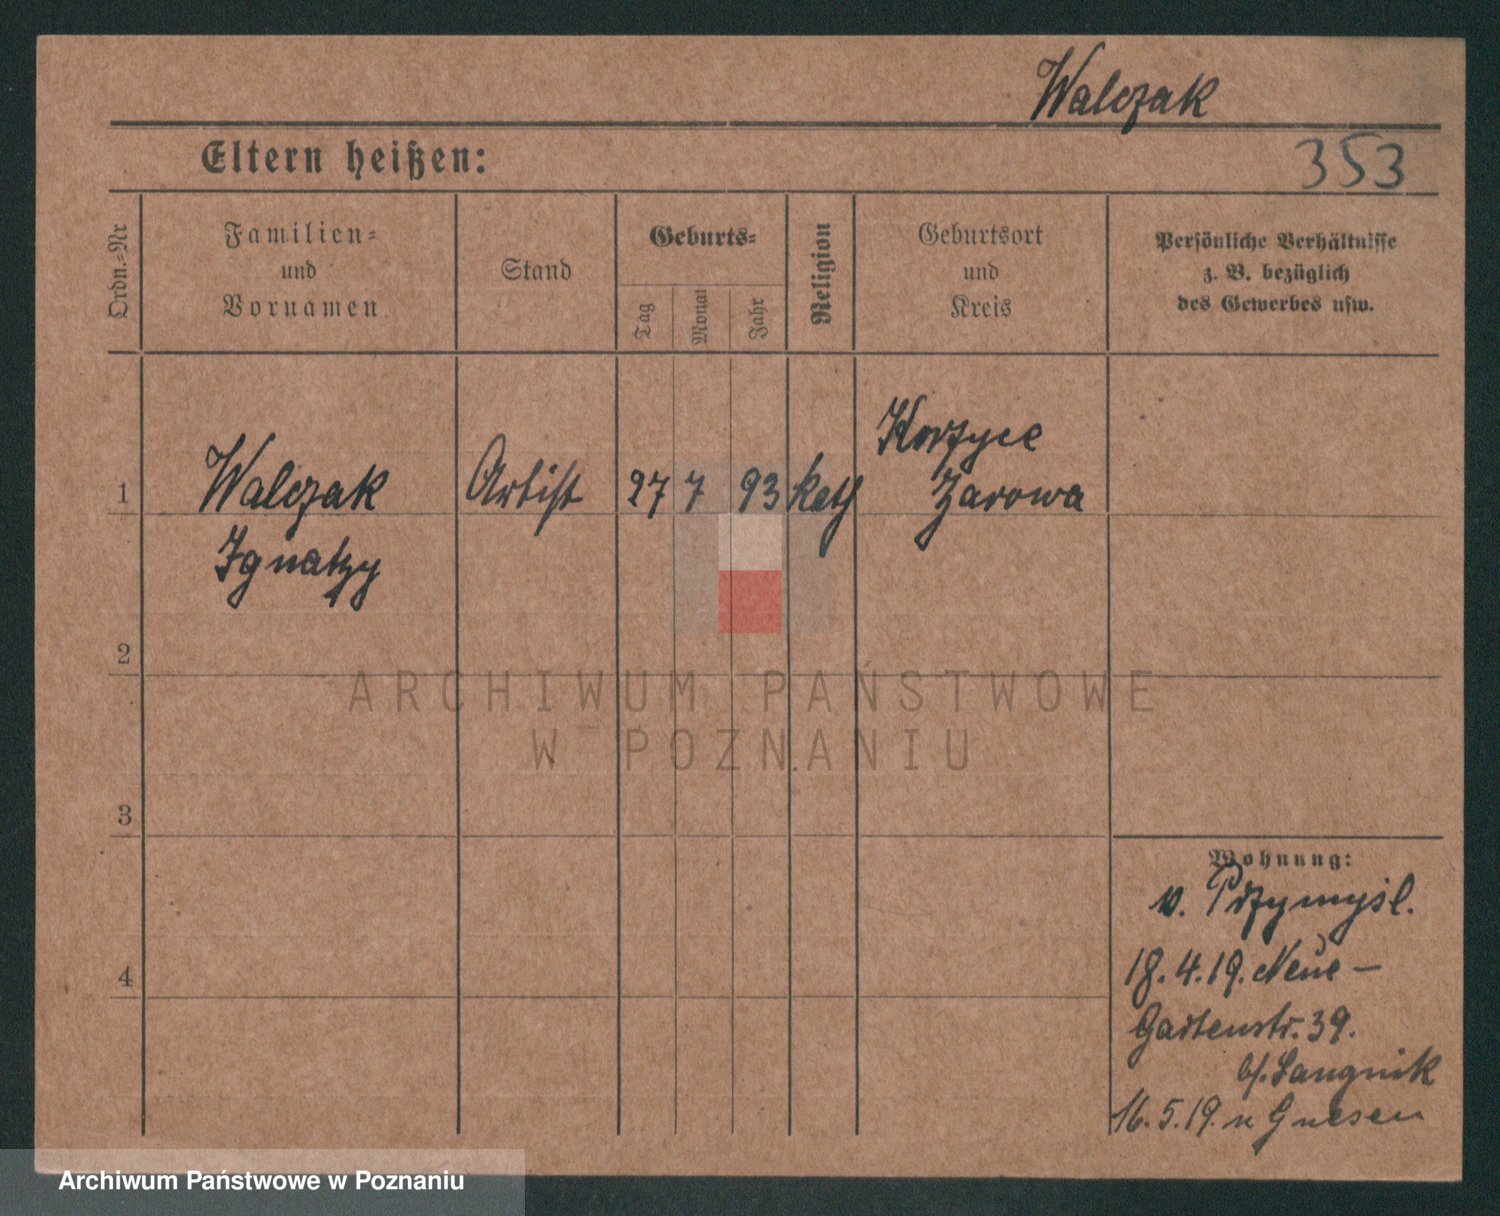 Walczak
Eltern heißen:
353
Ordn.=Nr
Familien=
und
Vornamen
Stand
Geburts=
Tag
Monat
Jahr
Religion
Geburtsort
und
Kreis
Persönliche Verhältnisse
z. B. bezüglich
des Gewerbes usw.
1
Walczak
Ignatzy
Artist
27
7
93
kath
Korzyce
Zarowa
2
3
4
Wohnung:
v. Przymysl.
18.4.19. Neue-
Gartenstr. 39.
b/. Langnik
16.5.19. n Gnesen
ARCHIWUM PAŃSTWOWE
W POZNANIU
Archiwum Państwowe w Poznaniu